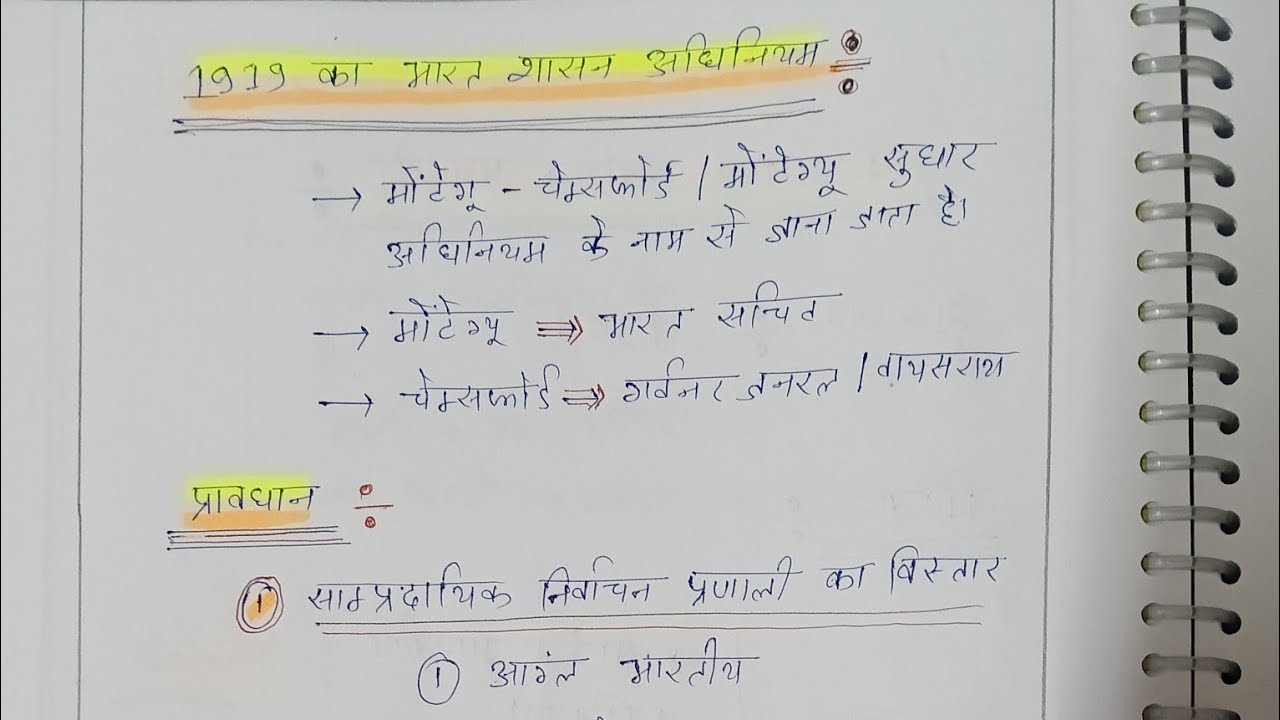 1919 का भारत शासन अधिनियम ÷
→ मोंटेगू - चेम्सफोर्ड / मोंटेग्यू सुधार
अधिनियम के नाम से जाना जाता है।
→ मोंटेग्यू ⇒ भारत सचिव
→ चेम्सफोर्ड ⇒ गर्वनर जनरल / वायसराय
प्रावधान ÷
① साम्प्रदायिक निर्वाचन प्रणाली का विस्तार
① आग्ंल भारतीय